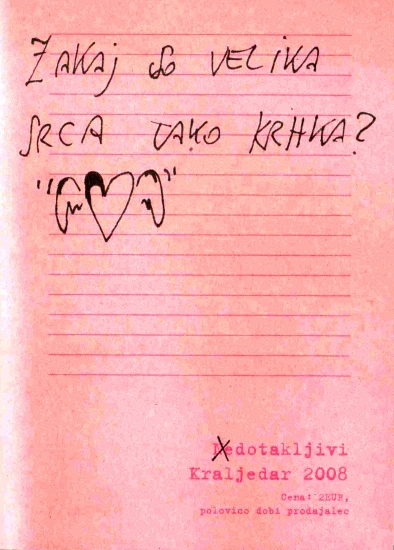 Zakaj so velika
srca tako krhka?
" "
Dedotakljivi
Kraljedar 2008
Cena: 2EUR,
polovico dobi prodajalec